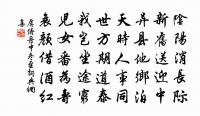 陰陽消長際
新舊送迎中
異縣他鄉泊
天時人事同
世方期道泰
我豈坐詩窮
兒女番為壽
衰顏借酒紅